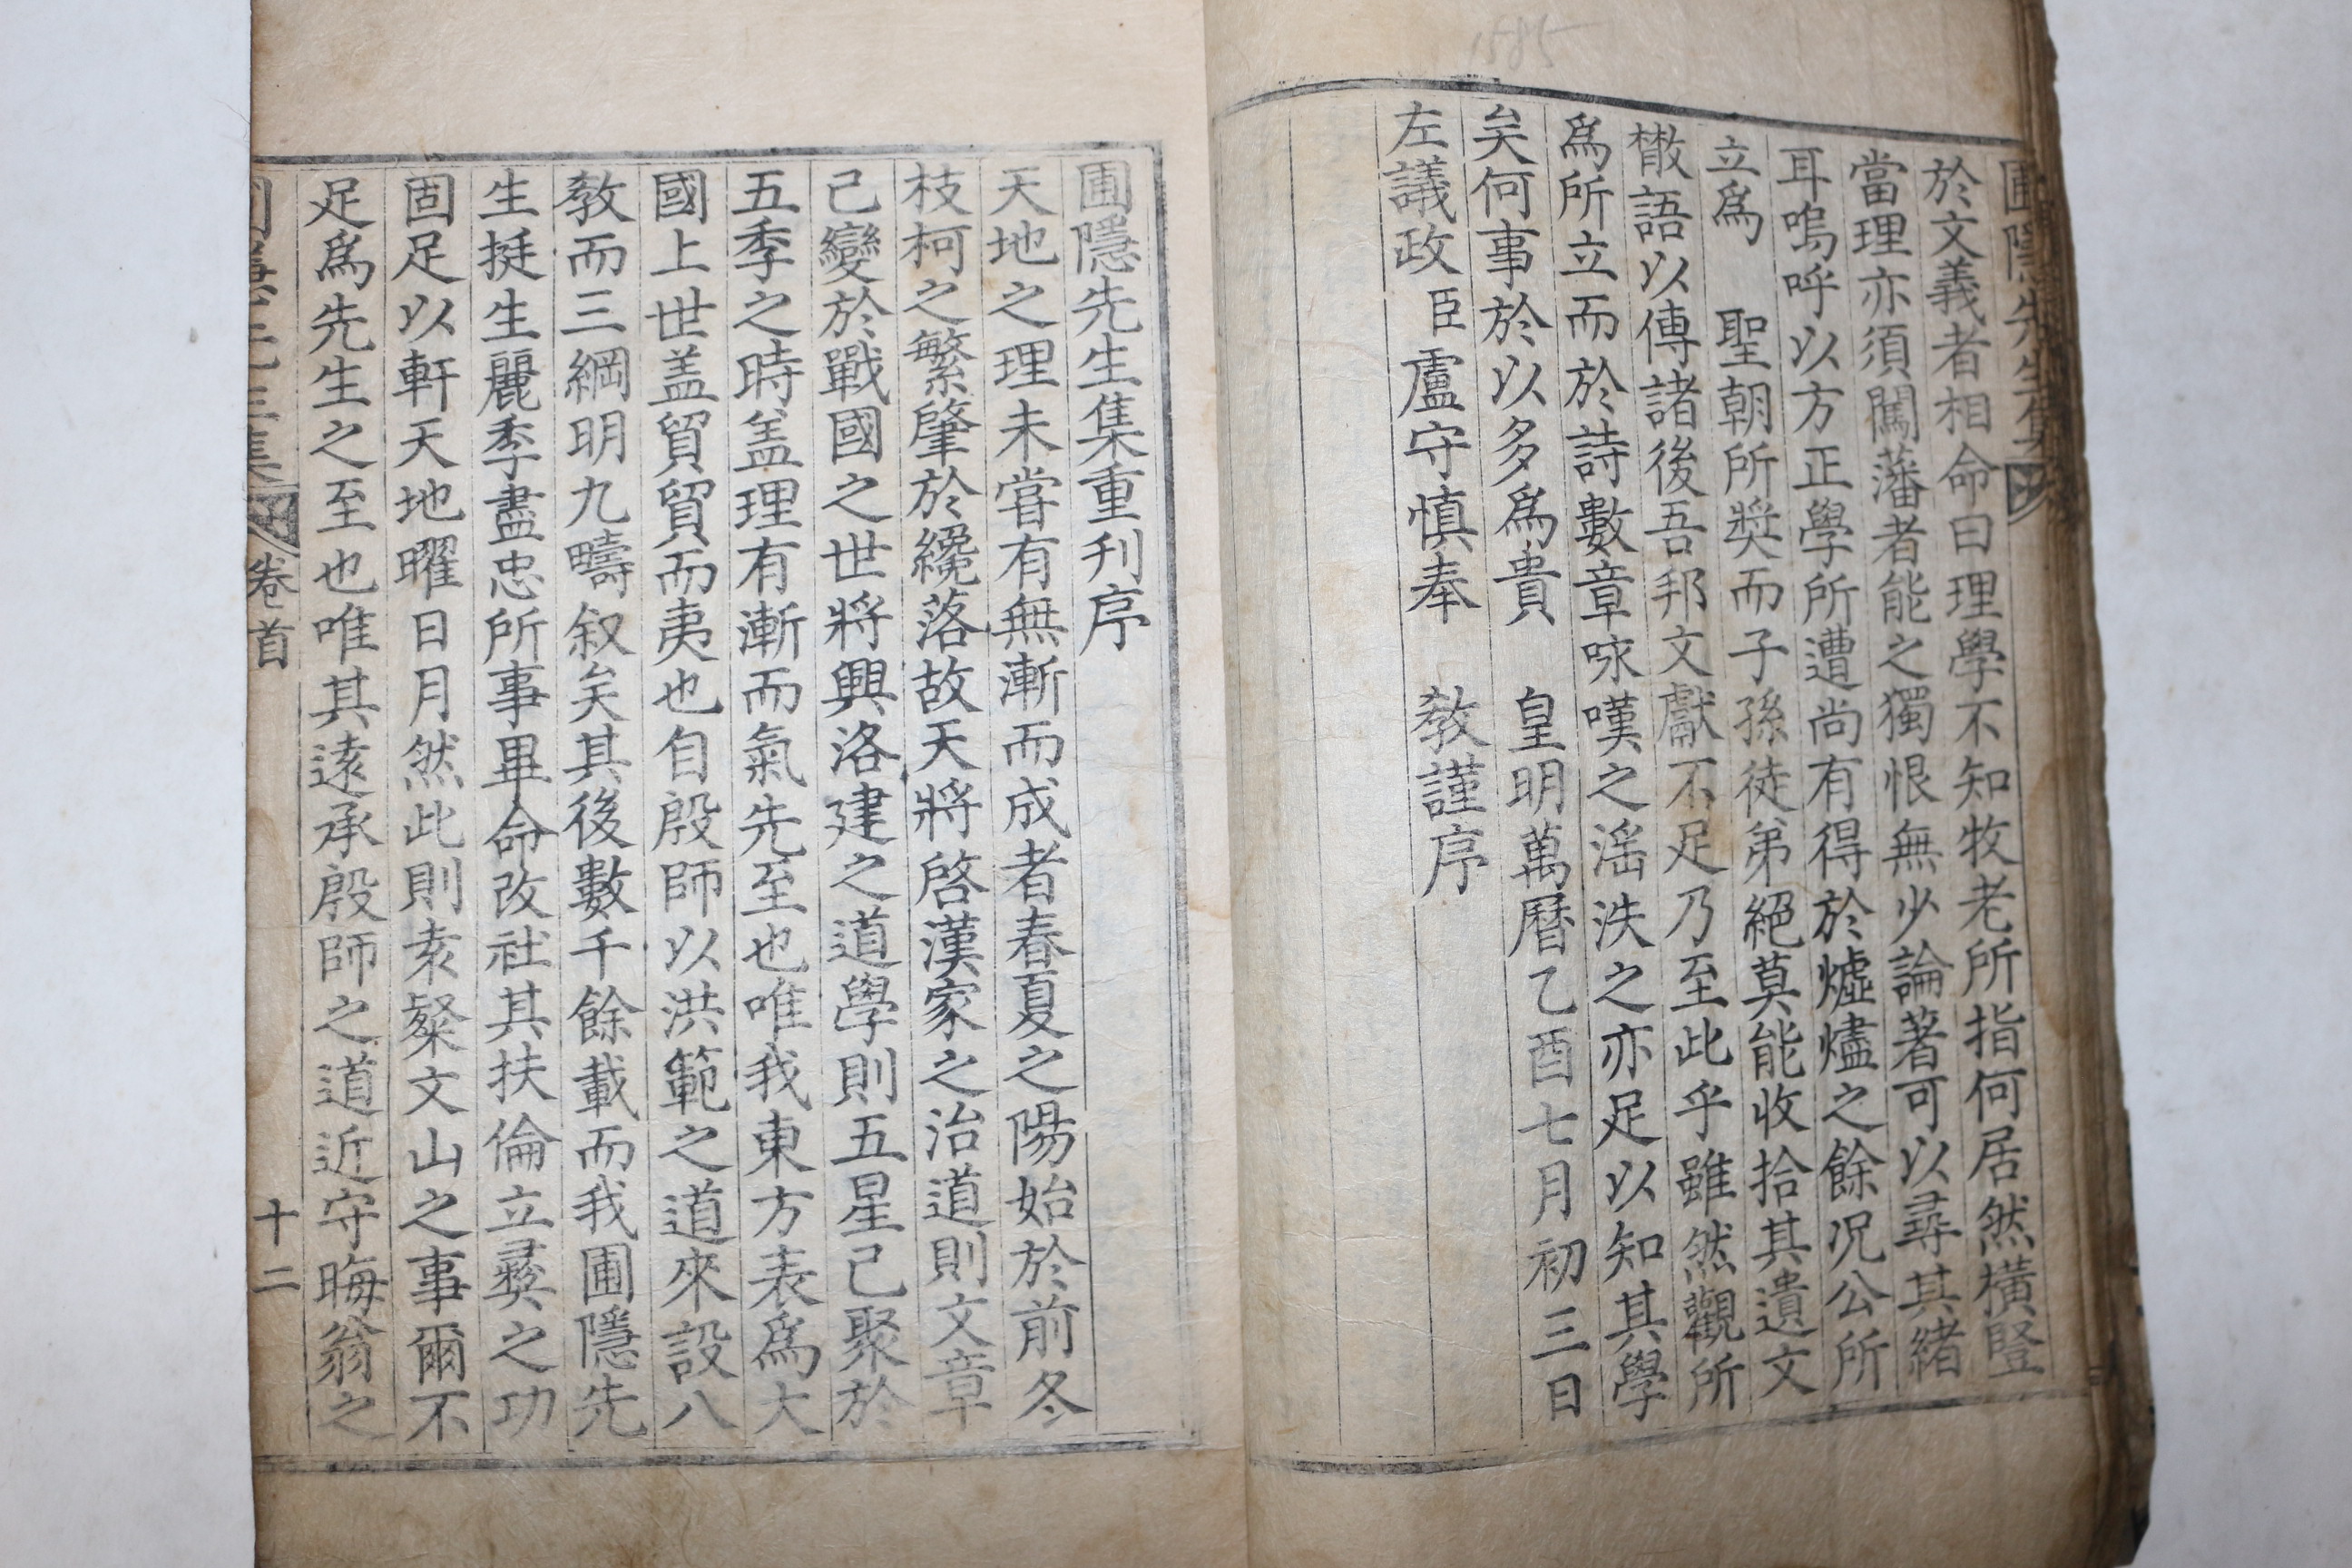 1585
圃隱先生集
於文義者相命曰理學不知牧老所指何居然橫豎
當理亦須闖藩者能之獨恨無少論著可以尋其緒
耳嗚呼以方正學所遭尚有得於爐燼之餘况公所
立爲 聖朝所奬而子孫徒弟絕莫能收拾其遺文
㪚語以傳諸後吾邦文獻不足乃至此乎雖然觀所
爲所立而於詩數章咏嘆之滛泆之亦足以知其學
矣何事於以多爲貴 皇明萬曆乙酉七月初三日
左議政臣盧守愼奉 敎謹序
圃隱先生集重刊序
天地之理未甞有無漸而成者春夏之陽始於前冬
枝柯之繁肇於纔落故天將啓漢家之治道則文章
已變於戰國之世將興洛建之道學則五星已聚於
五季之時盖理有漸而氣先至也唯我東方表爲大
國上世盖貿貿而夷也自殷師以洪範之道來設八
敎而三綱明九疇叙矣其後數千餘載而我圃隱先
生挺生麗季盡忠所事畢命改社其扶倫立彛之功
固足以軒天地曜日月然此則袁粲文山之事爾不
足爲先生之至也唯其遠承殷師之道近守晦翁之
卷首
十二